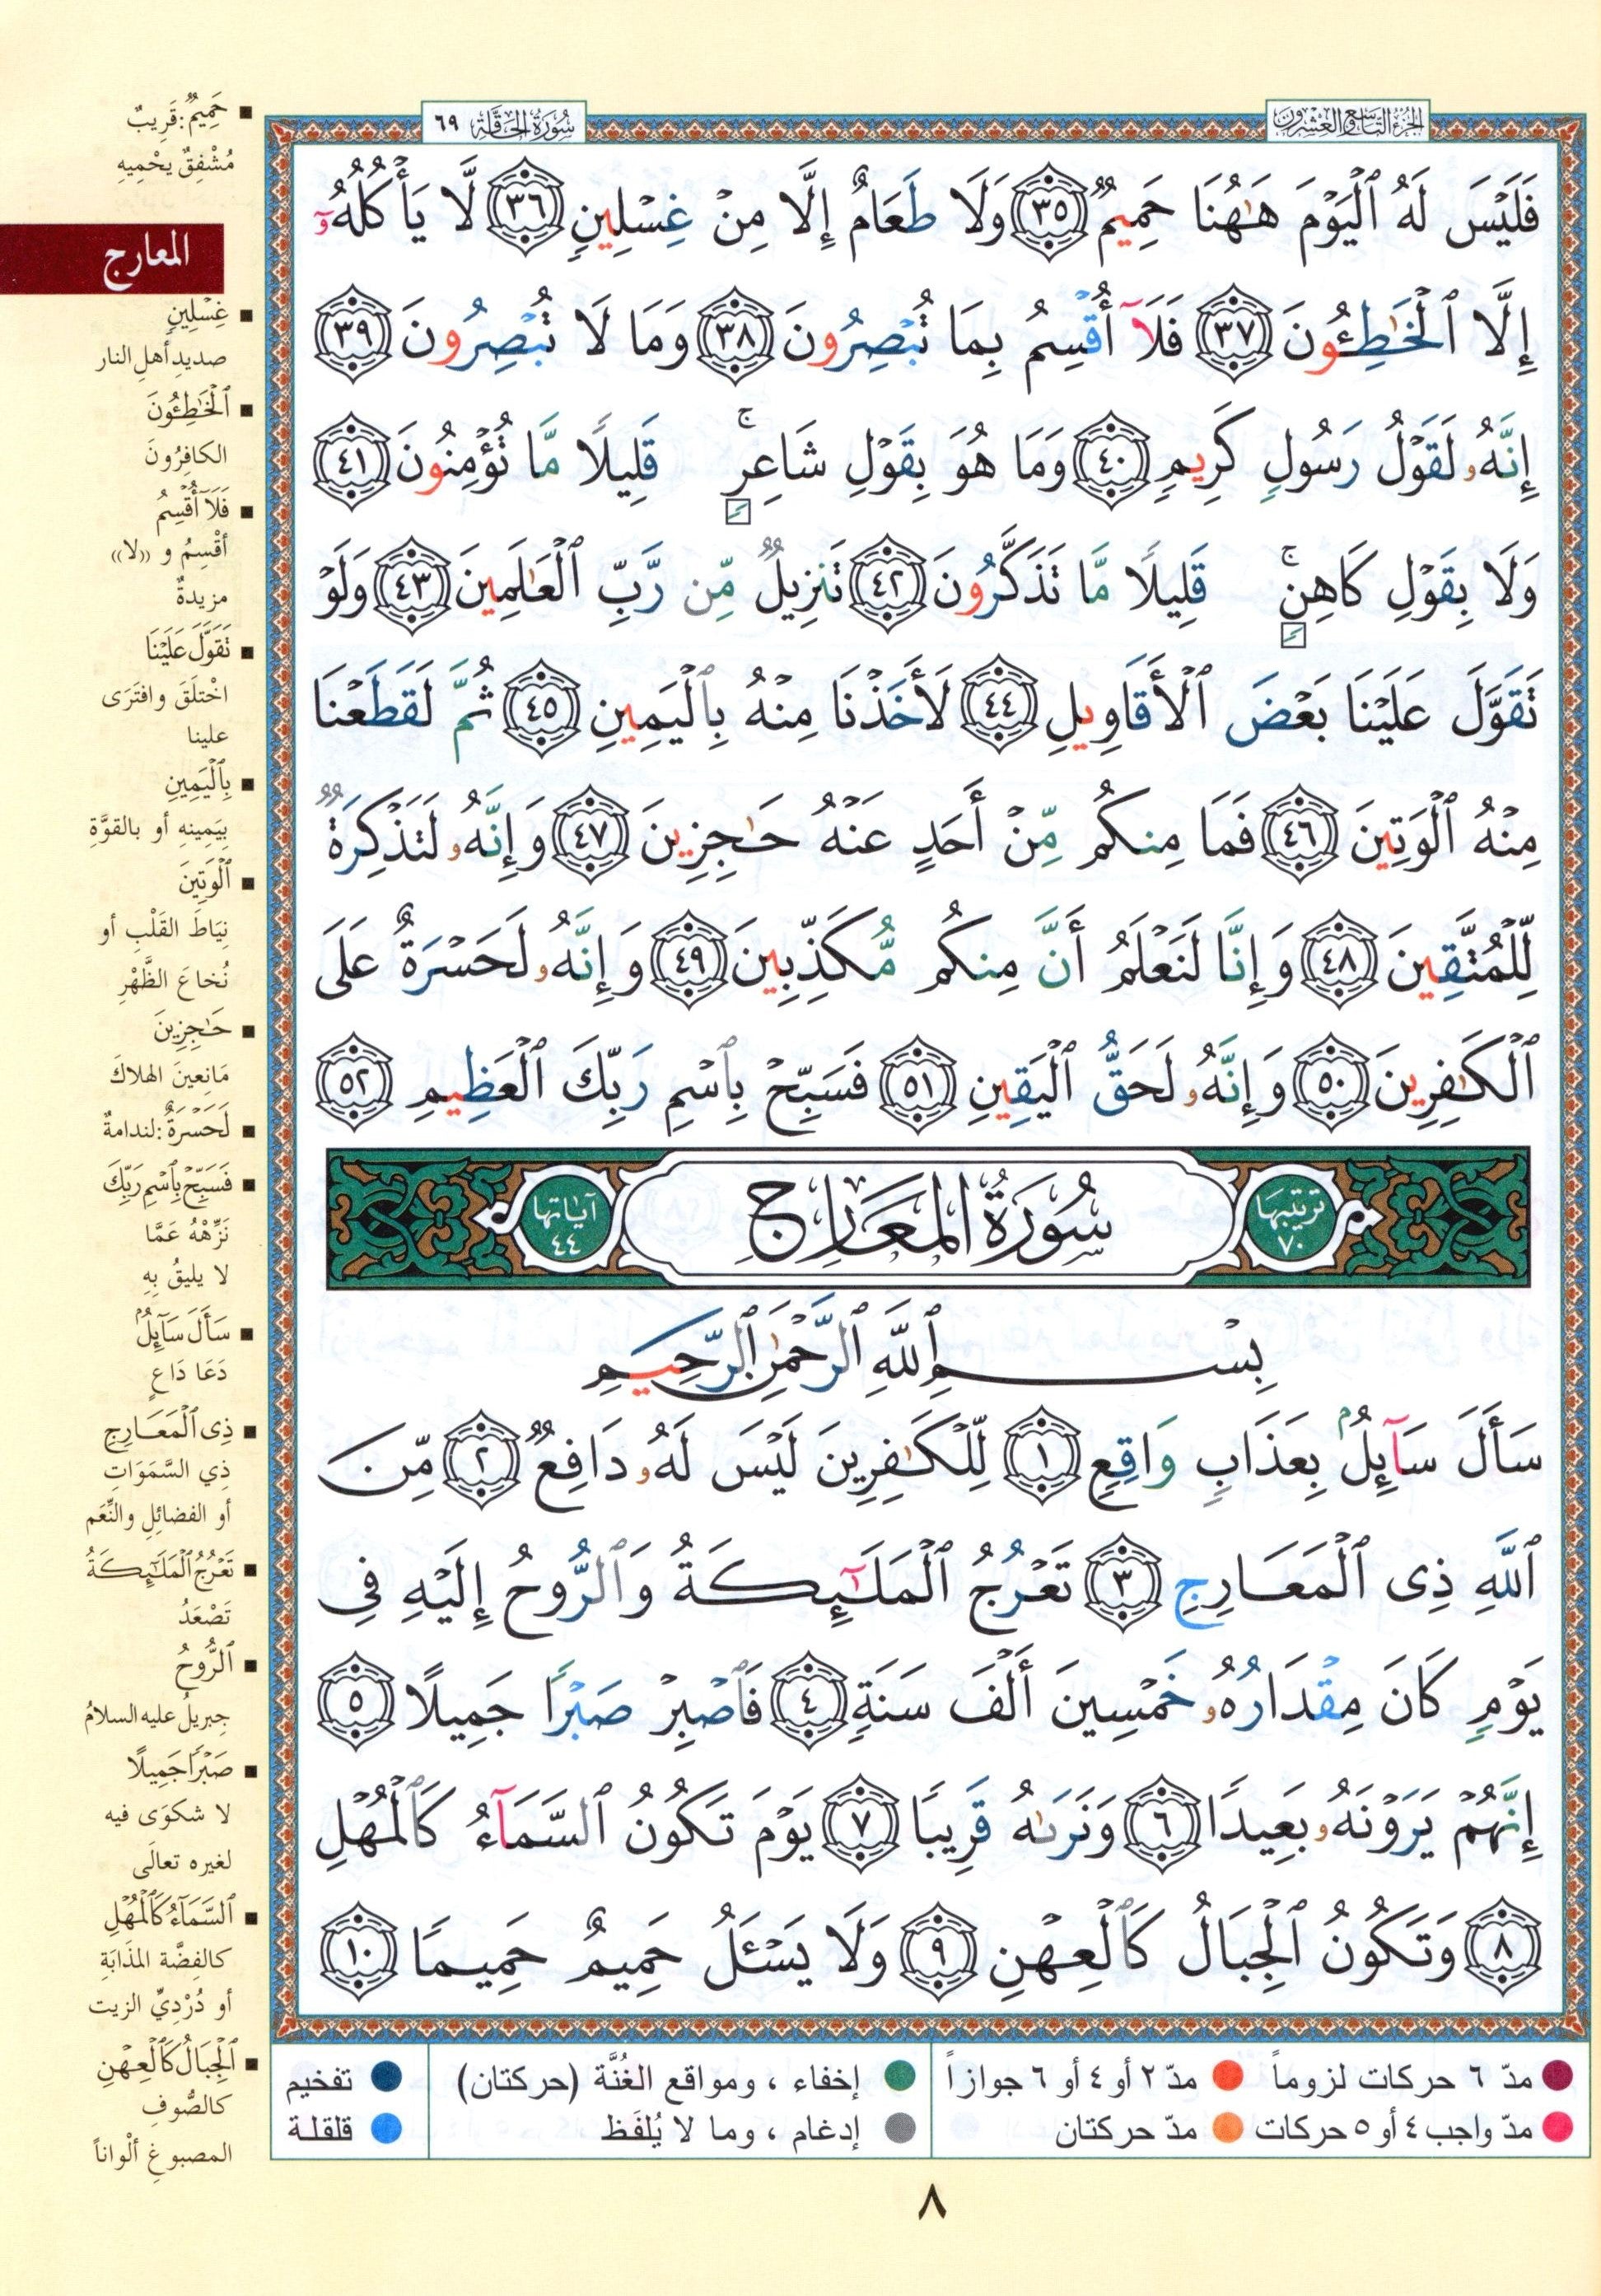 الجزء التاسع والعشرون
سورة الحاقة ٦٩
فَلَيْسَ لَهُ ٱلْيَوْمَ هَٰهُنَا حَمِيمٌ ٣٥ وَلَا طَعَامٌ إِلَّا مِنْ غِسْلِينٍ ٣٦ لَّا يَأْكُلُهُۥٓ
إِلَّا ٱلْخَٰطِـُٔونَ ٣٧ فَلَآ أُقْسِمُ بِمَا تُبْصِرُونَ ٣٨ وَمَا لَا تُبْصِرُونَ ٣٩
إِنَّهُۥ لَقَوْلُ رَسُولٍ كَرِيمٍ ٤٠ وَمَا هُوَ بِقَوْلِ شَاعِرٍ ۚ قَلِيلًا مَّا تُؤْمِنُونَ ٤١
وَلَا بِقَوْلِ كَاهِنٍ ۚ قَلِيلًا مَّا تَذَكَّرُونَ ٤٢ تَنزِيلٌ مِّن رَّبِّ ٱلْعَٰلَمِينَ ٤٣ وَلَوْ
تَقَوَّلَ عَلَيْنَا بَعْضَ ٱلْأَقَاوِيلِ ٤٤ لَأَخَذْنَا مِنْهُ بِٱلْيَمِينِ ٤٥ ثُمَّ لَقَطَعْنَا
مِنْهُ ٱلْوَتِينَ ٤٦ فَمَا مِنكُم مِّنْ أَحَدٍ عَنْهُ حَٰجِزِينَ ٤٧ وَإِنَّهُۥ لَتَذْكِرَةٌ
لِّلْمُتَّقِينَ ٤٨ وَإِنَّا لَنَعْلَمُ أَنَّ مِنكُم مُّكَذِّبِينَ ٤٩ وَإِنَّهُۥ لَحَسْرَةٌ عَلَى
ٱلْكَٰفِرِينَ ٥٠ وَإِنَّهُۥ لَحَقُّ ٱلْيَقِينِ ٥١ فَسَبِّحْ بِٱسْمِ رَبِّكَ ٱلْعَظِيمِ ٥٢
ترتيبها ٧٠
سُورَةُ المَعَارِجِ
آياتها ٤٤
بِسْمِ ٱللَّهِ ٱلرَّحْمَٰنِ ٱلرَّحِيمِ
سَأَلَ سَآئِلٌۢ بِعَذَابٍ وَاقِعٍ ١ لِّلْكَٰفِرِينَ لَيْسَ لَهُۥ دَافِعٌ ٢ مِّنَ
ٱللَّهِ ذِى ٱلْمَعَارِجِ ٣ تَعْرُجُ ٱلْمَلَٰٓئِكَةُ وَٱلرُّوحُ إِلَيْهِ فِى
يَوْمٍ كَانَ مِقْدَارُهُۥ خَمْسِينَ أَلْفَ سَنَةٍ ٤ فَٱصْبِرْ صَبْرًا جَمِيلًا ٥
إِنَّهُمْ يَرَوْنَهُۥ بَعِيدًا ٦ وَنَرَىٰهُ قَرِيبًا ٧ يَوْمَ تَكُونُ ٱلسَّمَآءُ كَٱلْمُهْلِ
٨ وَتَكُونُ ٱلْجِبَالُ كَٱلْعِهْنِ ٩ وَلَا يَسْـَٔلُ حَمِيمٌ حَمِيمًا ١٠
حَمِيمٌ: قَرِيبٌ
مُشْفِقٌ يَحْمِيهِ
المعارج
غِسْلِينٍ
صديدِ أهلِ النار
ٱلْخَٰطِـُٔونَ
الكافِرُونَ
فَلَآ أُقْسِمُ
أقْسِمُ و «لا»
مزيدةٌ
تَقَوَّلَ عَلَيْنَا
اخْتلَقَ وافتَرَى
علينا
بِٱلْيَمِينِ
بِيَمِينِهِ أو بالقوَّةِ
ٱلْوَتِينَ
نِيَاطَ القَلْبِ أو
نُخاعَ الظَّهْرِ
حَٰجِزِينَ
مَانِعِينَ الهلاكَ
لَحَسْرَةٌ: لندامةٌ
فَسَبِّحْ بِٱسْمِ رَبِّكَ
نَزِّهْهُ عَمَّا
لا يليقُ بِهِ
سَأَلَ سَآئِلٌۢ
دَعَا دَاعٍ
ذِى ٱلْمَعَارِجِ
ذِي السَّمَوَاتِ
أو الفضائِلِ والنِّعَم
تَعْرُجُ ٱلْمَلَٰٓئِكَةُ
تَصْعَدُ
ٱلرُّوحُ
جبريلُ عليه السلامُ
صَبْرًا جَمِيلًا
لا شكوَى فيه
لغيره تعالَى
ٱلسَّمَآءُ كَٱلْمُهْلِ
كالفِضَّة المذَابَةِ
أو دُرْدِيِّ الزيت
ٱلْجِبَالُ كَٱلْعِهْنِ
كالصُّوفِ
المصبوغِ ألْواناً
مدّ ٦ حركات لزوماً
مدّ ٢ أو ٤ أو ٦ جوازاً
إخفاء ، ومواقع الغُنَّة (حركتان)
تفخيم
مدّ واجب ٤ أو ٥ حركات
مدّ حركتان
إدغام ، وما لا يُلفَظ
قلقلة
٨